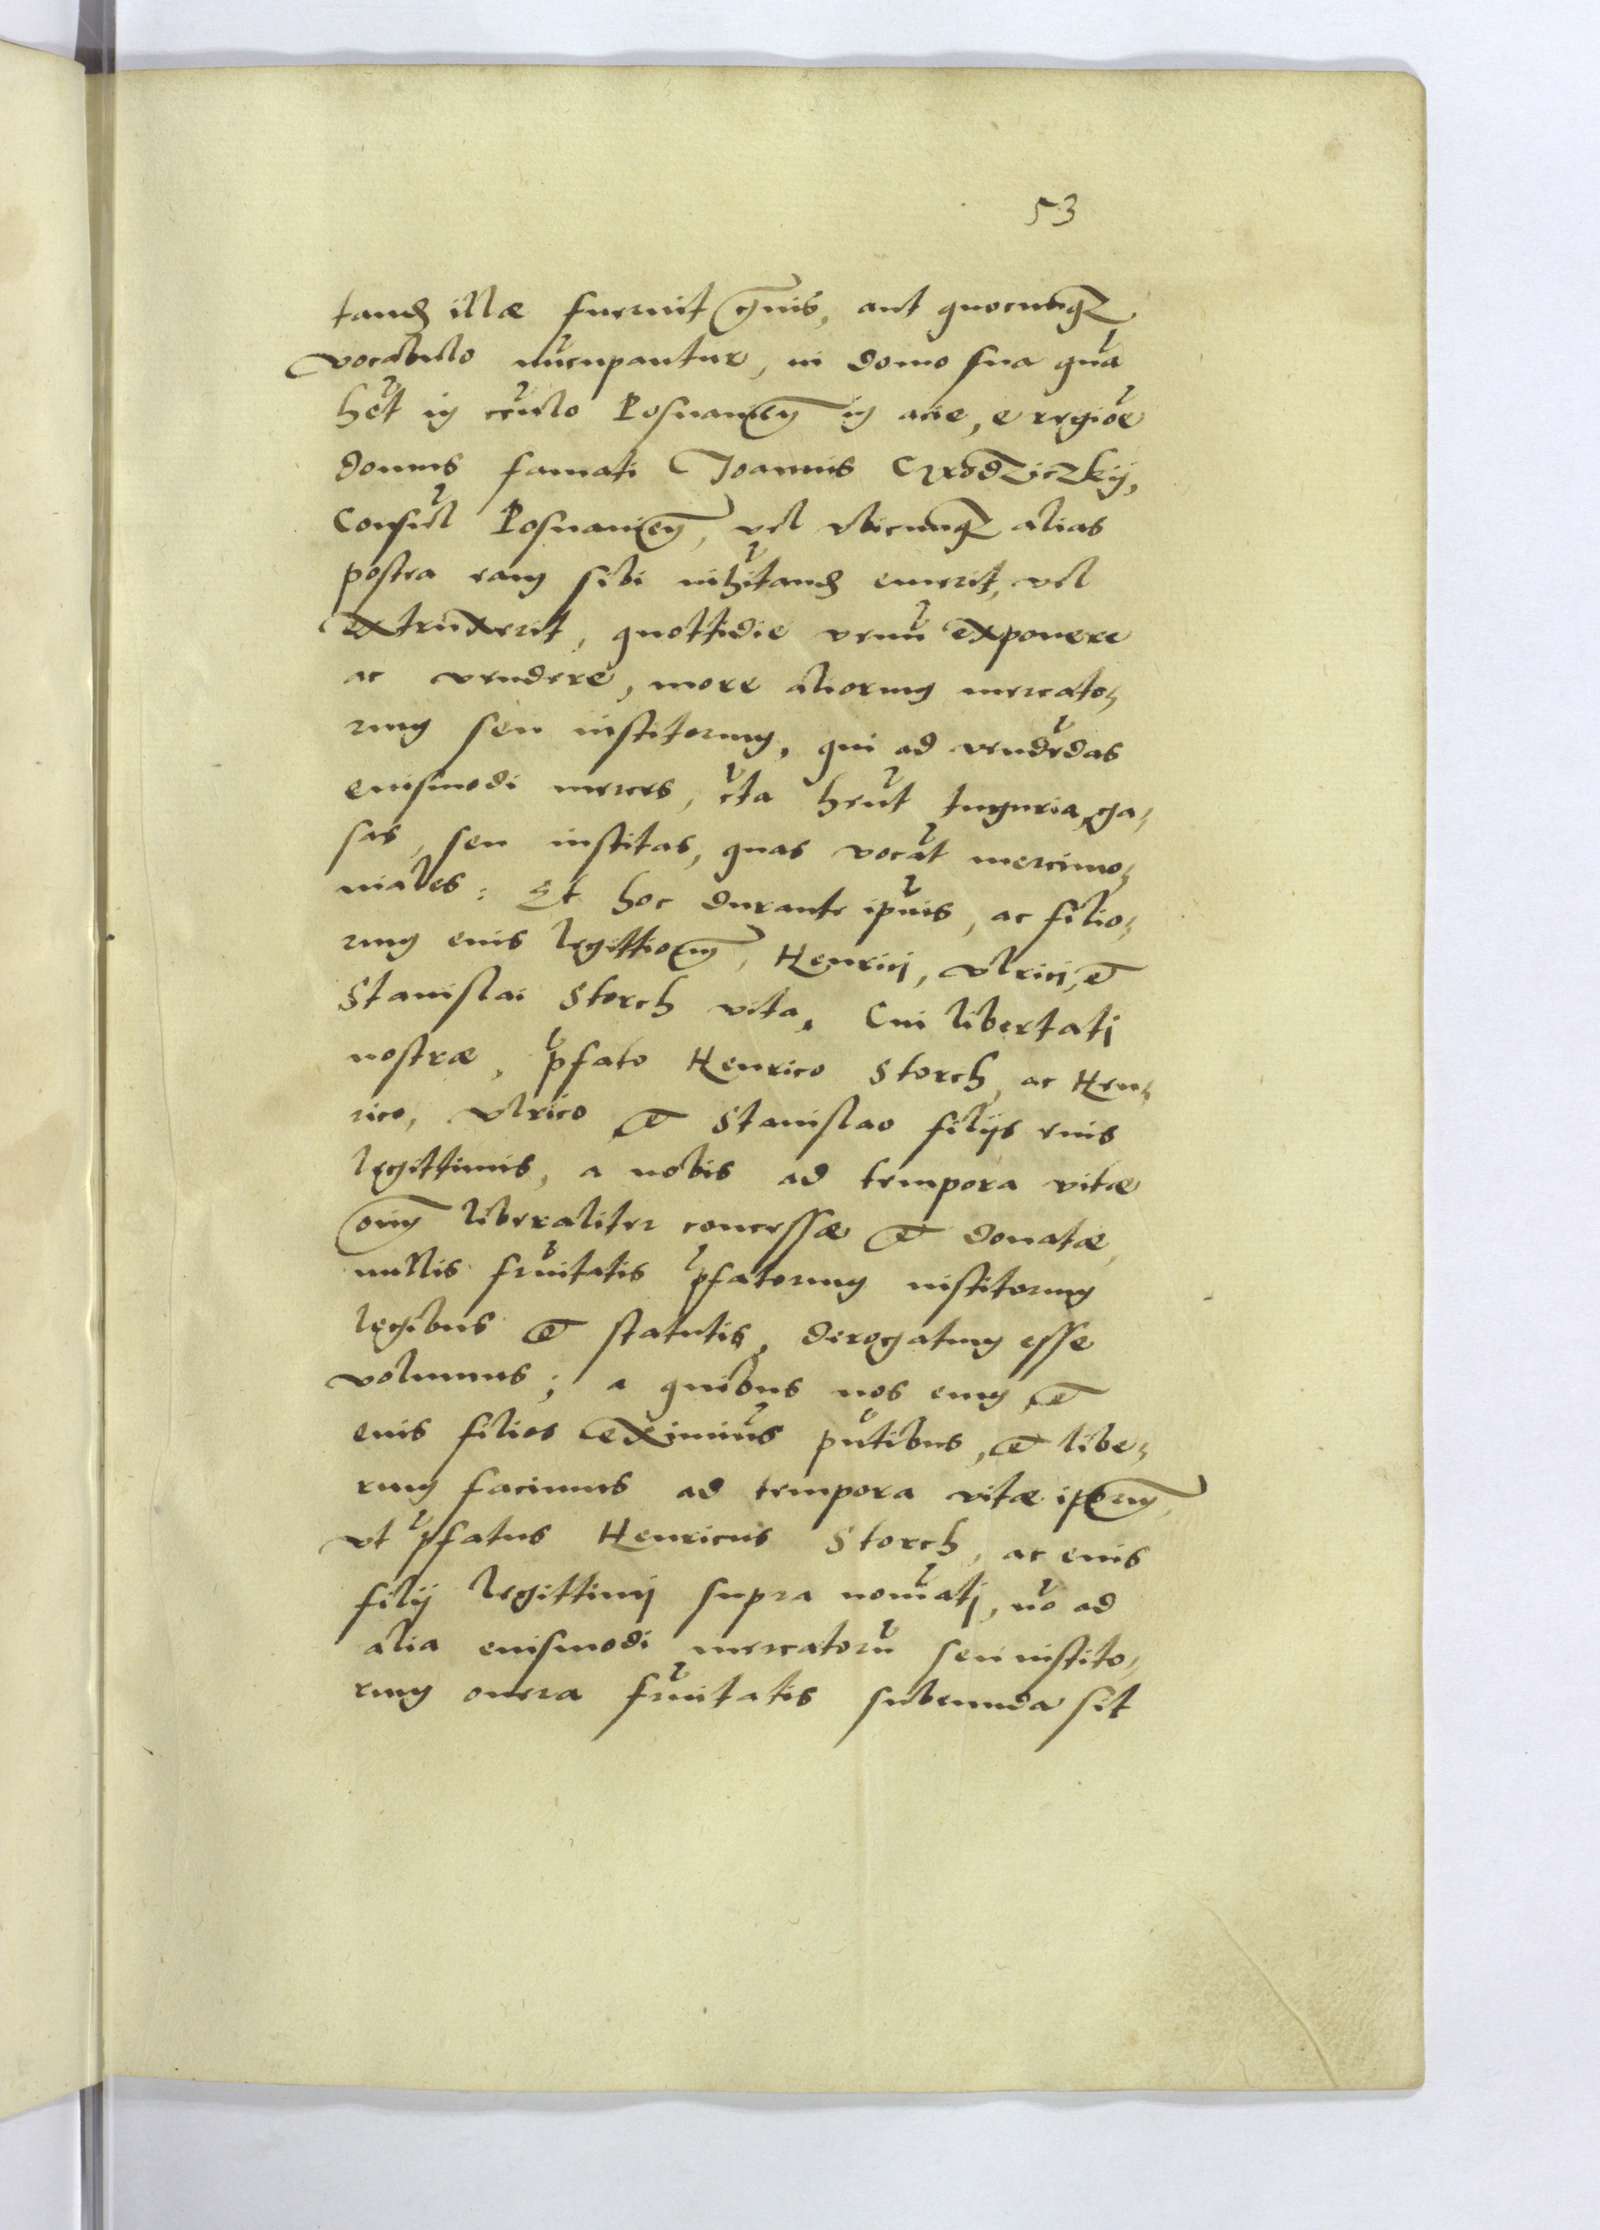 53
tand illæ fuerint gnis, aut quocunqz
vocabulo nucupantur, in domo sua qua
het in cculo Posnanien in acie, e regioe
domus famati Joannis Grodziczkij,
Consul Posnanien, vel vbicunqz alias
postea eam sibi inhitand emerit, vel
extruxerit, quottidie venu exponere
ac vendere, more aliorum mercato,
rum seu institorum, qui ad vendedas
euismodi merces, cta hent tuguria, ga,
sas, seu institas, quas vocat mercimo,
niales: Et hoc durante ipius, ac filio,
rum eius legittiorum, Henrici, Vlrici, et
Stanislai Storch vita, Cui libertati
nostræ, pfato Henrico Storch, ac Hen,
rico, Vlrico et Stanislao filijs eius
legittimis, a nobis ad tempora vitæ
oim liberaliter concessæ et donatæ,
nullis fruitatis pfatorum institorum
legibus et statutis, derogatum esse
volumus; a quibus nos eum et
eius filios eximius putibus, et libe,
rum facimus ad tempora vitæ iporum,
vt pfatus Henricus Storch, ac eius
filij legittimj supra noiatj, no ad
alia euismodi mercatoru seu instito,
rum onera fruitatis subeunda sit